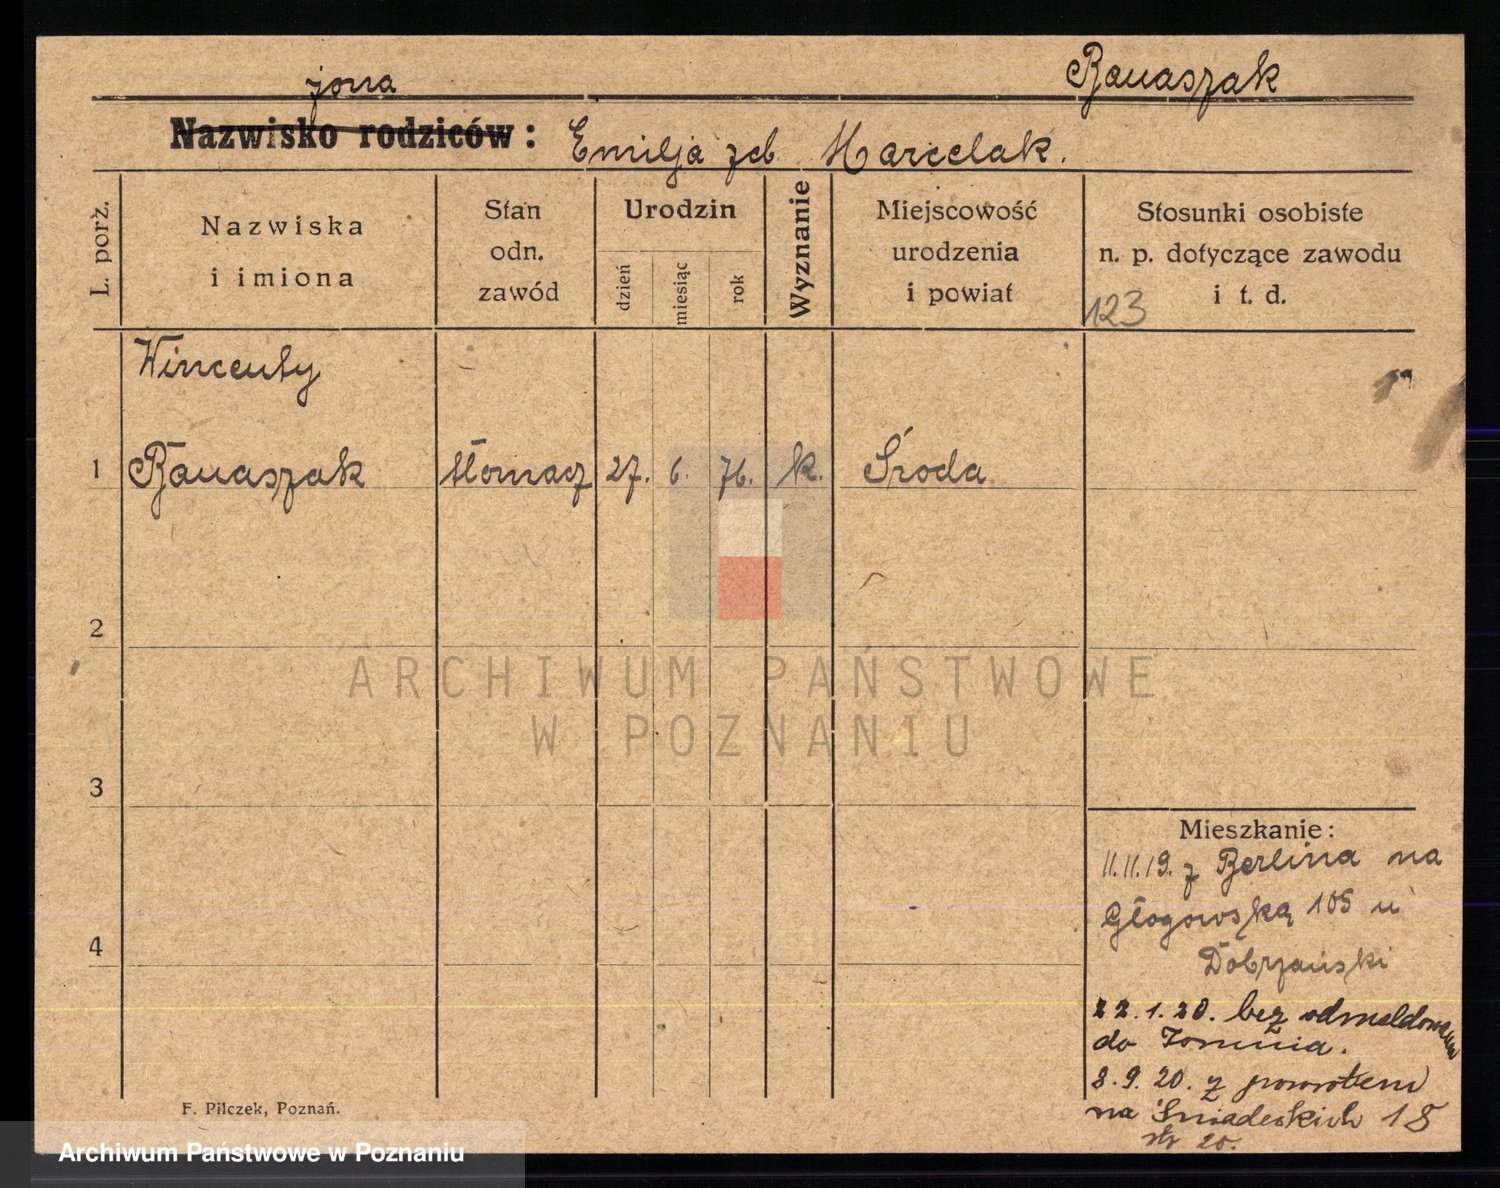 żona
Banaszak
Nazwisko rodziców:
Emilja zeb. Marcelak.
L. porz.
Nazwiska
i imiona
Stan
odn.
zawód
Urodzin
dzień
miesiąc
rok
Wyznanie
Miejscowość
urodzenia
i powiat
Stosunki osobiste
n. p. dotyczące zawodu
i t. d.
123
Wincenty
1 Banaszak tłomacz 27. 6. 76. k. Środa
2
ARCHIWUM PAŃSTWOWE
W POZNANIU
3
Mieszkanie:
11.11.19. z Berlina na
Głogowską 105 u
4
Dobrzański
22.1.20. bez odmeldowania
do Torunia.
8.9.20. z powrotem
na Śniadeckich 18
20.
F. Pilczek, Poznań.
Archiwum Państwowe w Poznaniu